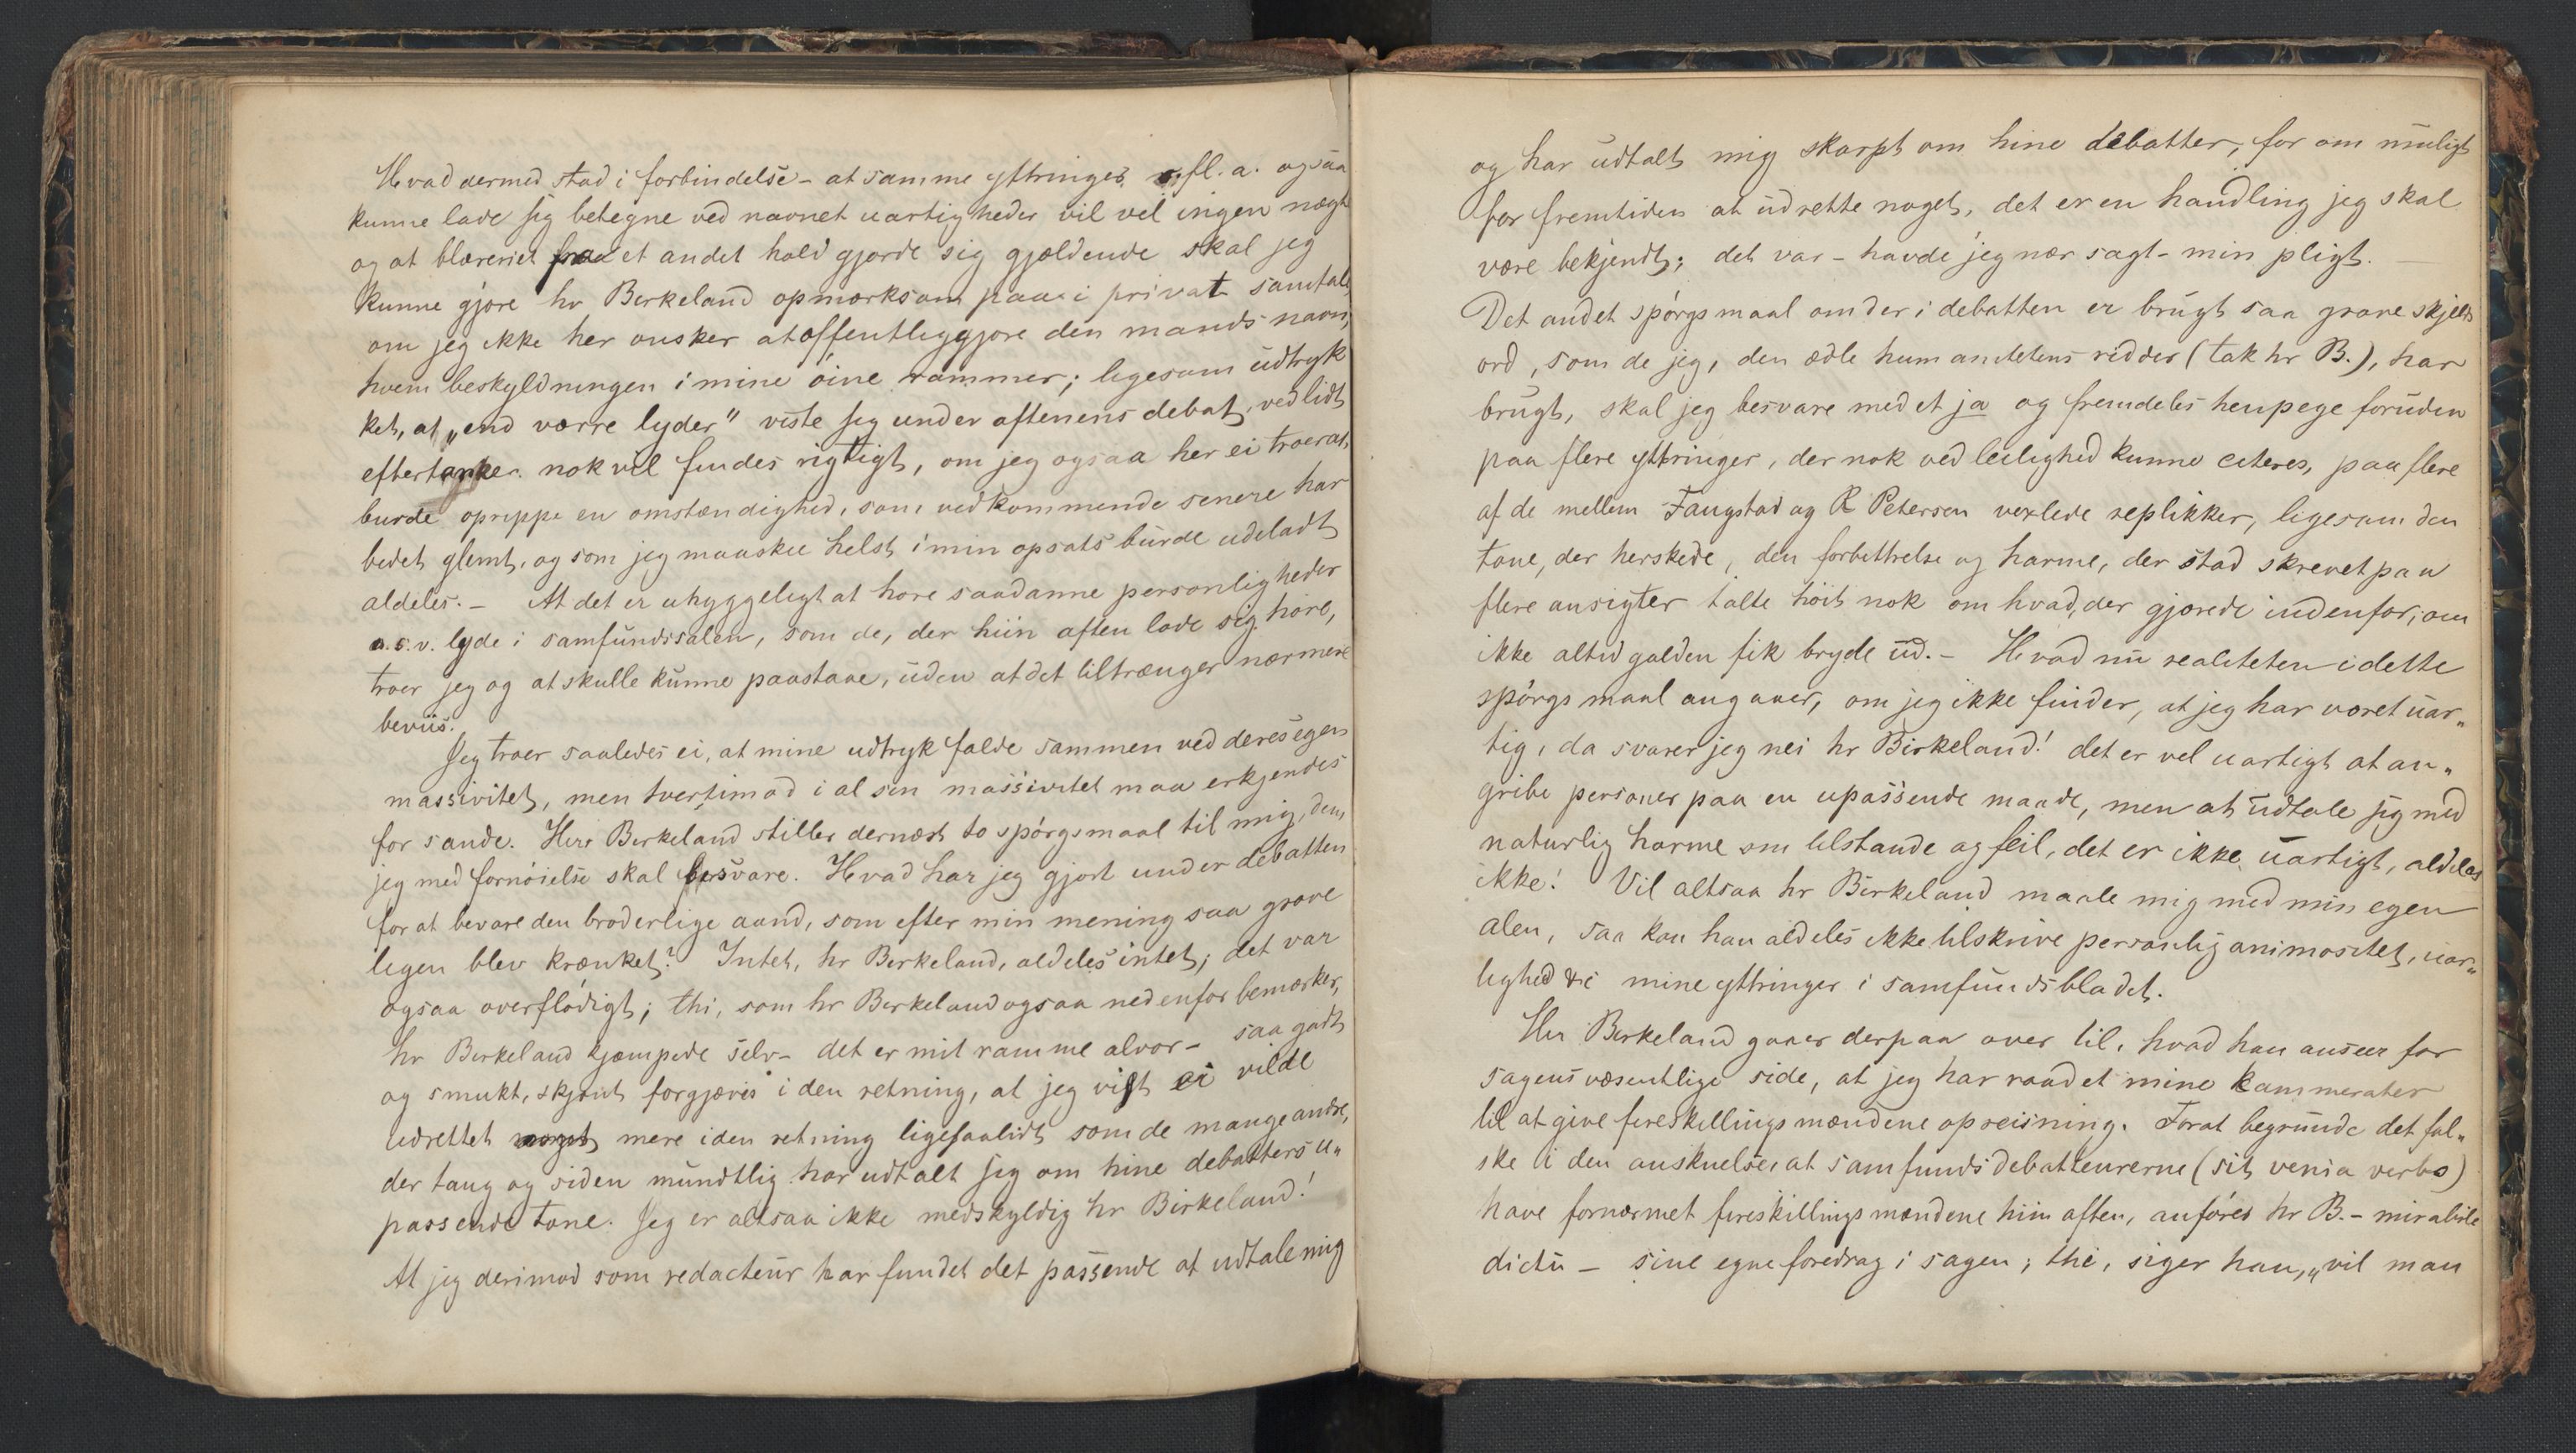 Hvad dermed stod i forbindelse - at samme yttringer m. fl. a. ogsaa
kunne lade sig betegne ved navnet uartigheder vil vel ingen nægte
og at blæreriet fra et andet hold gjorde sig gjældende skal jeg
kunne gjøre hr Birkeland opmærksom paa i privat samtale,
om jeg ikke her ønsker at offentliggjøre den mands navn,
hvem beskyldningen i mine öine rammer; ligesom udtryk
ket, at „end værre lyder" viste sig under aftenens debat, ved lidt
eftertanke nok vil findes rigtigt, om jeg ogsaa her ei troer at
burde oprippe en omstændighed, som vedkommende senere har
bedet glemt, og som jeg maaskee helst i min opsats burde udeladt
aldeles. - At det er uhyggeligt at høre saadanne personligheder
o.s.v. lyde i samfundssalen, som de, der hiin aften lode sig höre,
troer jeg og at skulle kunne paastaae, uden at det tiltrænger nærmere
beviis.
Jeg troer saaledes ei, at mine udtryk falde sammen ved deres egen
massivitet, men tvertimod i al sin massivitet maa erkjendes
for sande. Herr Birkeland stiller dernæst to spörgsmaal til mig, dem
jeg med fornöielse skal besvare. Hvad har jeg gjort under debatten
for at bevare den broderlige aand, som efter min mening saa grove
ligen blev krænket? Intet, hr Birkeland, aldeles intet; det var
ogsaa overflödigt; thi, som hr Birkeland ogsaa nedenfor bemærker,
hr Birkeland kjæmpede selv - det er mit ramme alvor - saa godt
og smukt, skjönt forgjæves i den retning, at jeg vist ei vilde
udrettet mere i den retning ligesaalidt som de mange andre,
der taug og siden mundtlig har udtalt sig om hine debatters u„
passende tone. Jeg er altsaa ikke medskyldig hr Birkeland!
At jeg derimod som redacteur har fundet det passende at udtale mig
og har udtalt mig skarpt om hine debatter, for om muligt
for fremtiden at udrette noget, det er en handling jeg skal
være bekjendt; det var - havde jeg nær sagt - min pligt. —
Det andet spörgsmaal om der i debatten er brugt saa grove skjelds
ord, som de jeg, den ædle humanitetens ridder (tak hr B.), har
brugt, skal jeg besvare med et ja og fremdeles henpege foruden
paa flere yttringer, der nok ved leilighed kunne citeres, paa flere
af de mellem Faugstad og R Petersen vexlede replikker, ligesom den
tone, der herskede, den forbittrelse og harme, der stod skrevet paa
flere ansigter talte höit nok om hvad, der gjærede indenfor, om
ikke altid galden fik bryde ud. - Hvad nu realiteten i dette
spörgsmaal angaaer, om jeg ikke finder, at jeg har været uar„
tig, da svarer jeg nei hr Birkeland! det er vel uartigt at an„
gribe personer paa en upassende maade, men at udtale sig med
naturlig harme om tilstande og feil, det er ikke uartigt, aldeles
ikke! Vil altsaa hr Birkeland maale mig med min egen
alen, saa kan han aldeles ikke tilskrive personlig animositet, uar„
lighed &c mine yttringer i samfundsbladet.
Hr Birkeland gaaer derpaa over til, hvad han anseer for
sagens væsentlige side, at jeg har raadet mine kammerater
til at give fireskillingsmændene opreisning. For at begrunde det fal„
ske i den anskuelse, at samfundsdebatteurerne (sit venia verbo)
have fornærmet fireskillingsmændene hiin aften, anförer hr B. - mirabile
dictu - sine egne foredrag i sagen; thi, siger han, „vil man